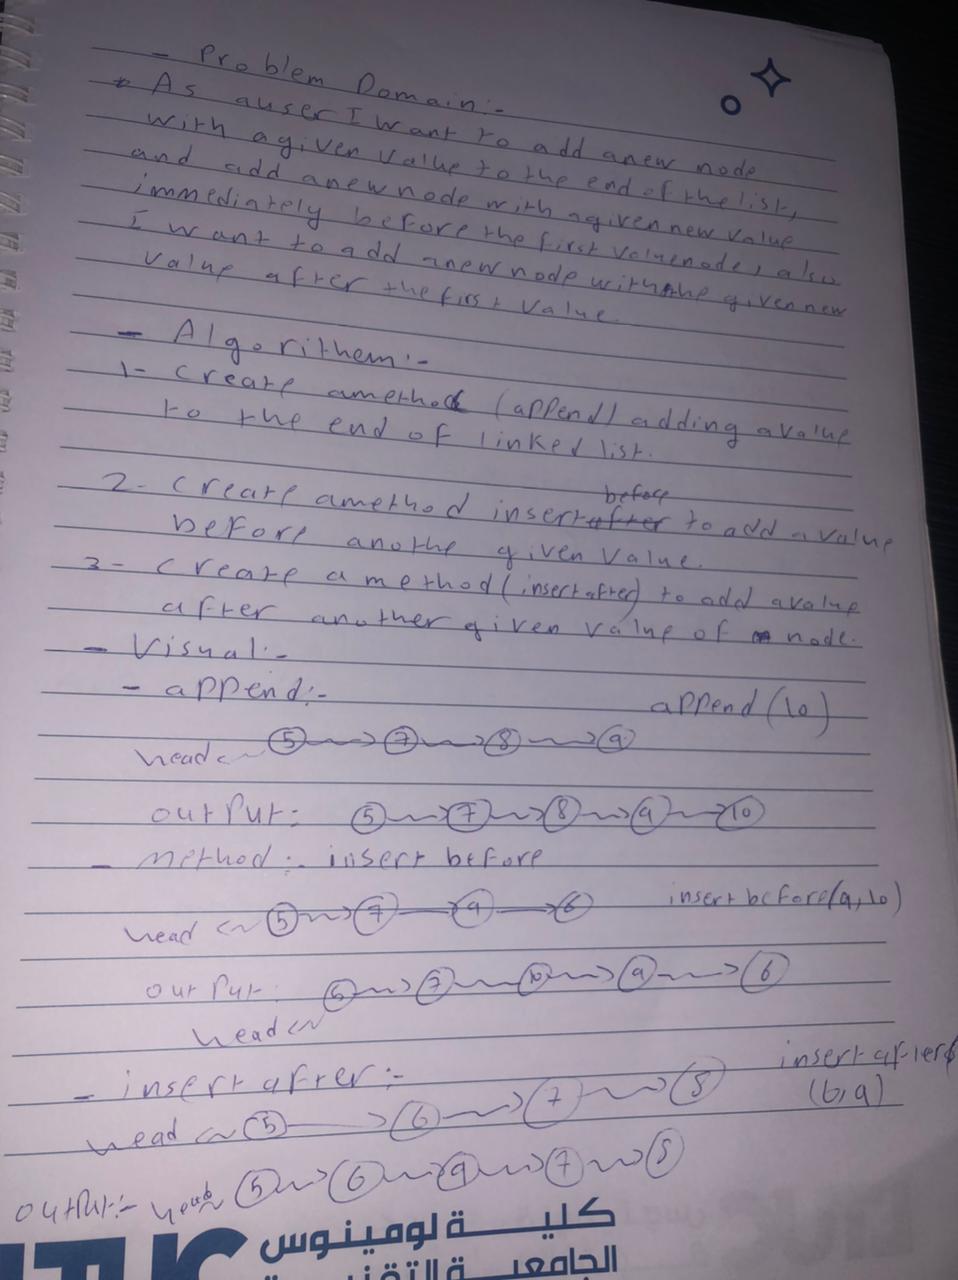 - Problem Domain:-
* As auser I want to add anew node
with a given value to the end of the list,
and add anew node with a given new value
immediately before the first value node, also
I want to add anew node with the given new
value after the first value.
- Algorithem:-
1- create amethod (append) adding a value
to the end of linked list.
2- create amethod insert before to add a value
before anothe given value.
3- create a method (insert after) to add avalue
after another given value of node.
- Visual:-
- append:- append(10)
head 5 7 8 9
output: 5 7 8 9 10
- method:- insert before
head 5 7 9 6 insert before(9,10)
output: 5 7 10 9 6
head
- insert after:- insert after
head 5 6 7 8 (6,9)
output:- head 5 6 9 7 8
كليـــة لومينوس
الجامعيـــة التقنيـــة